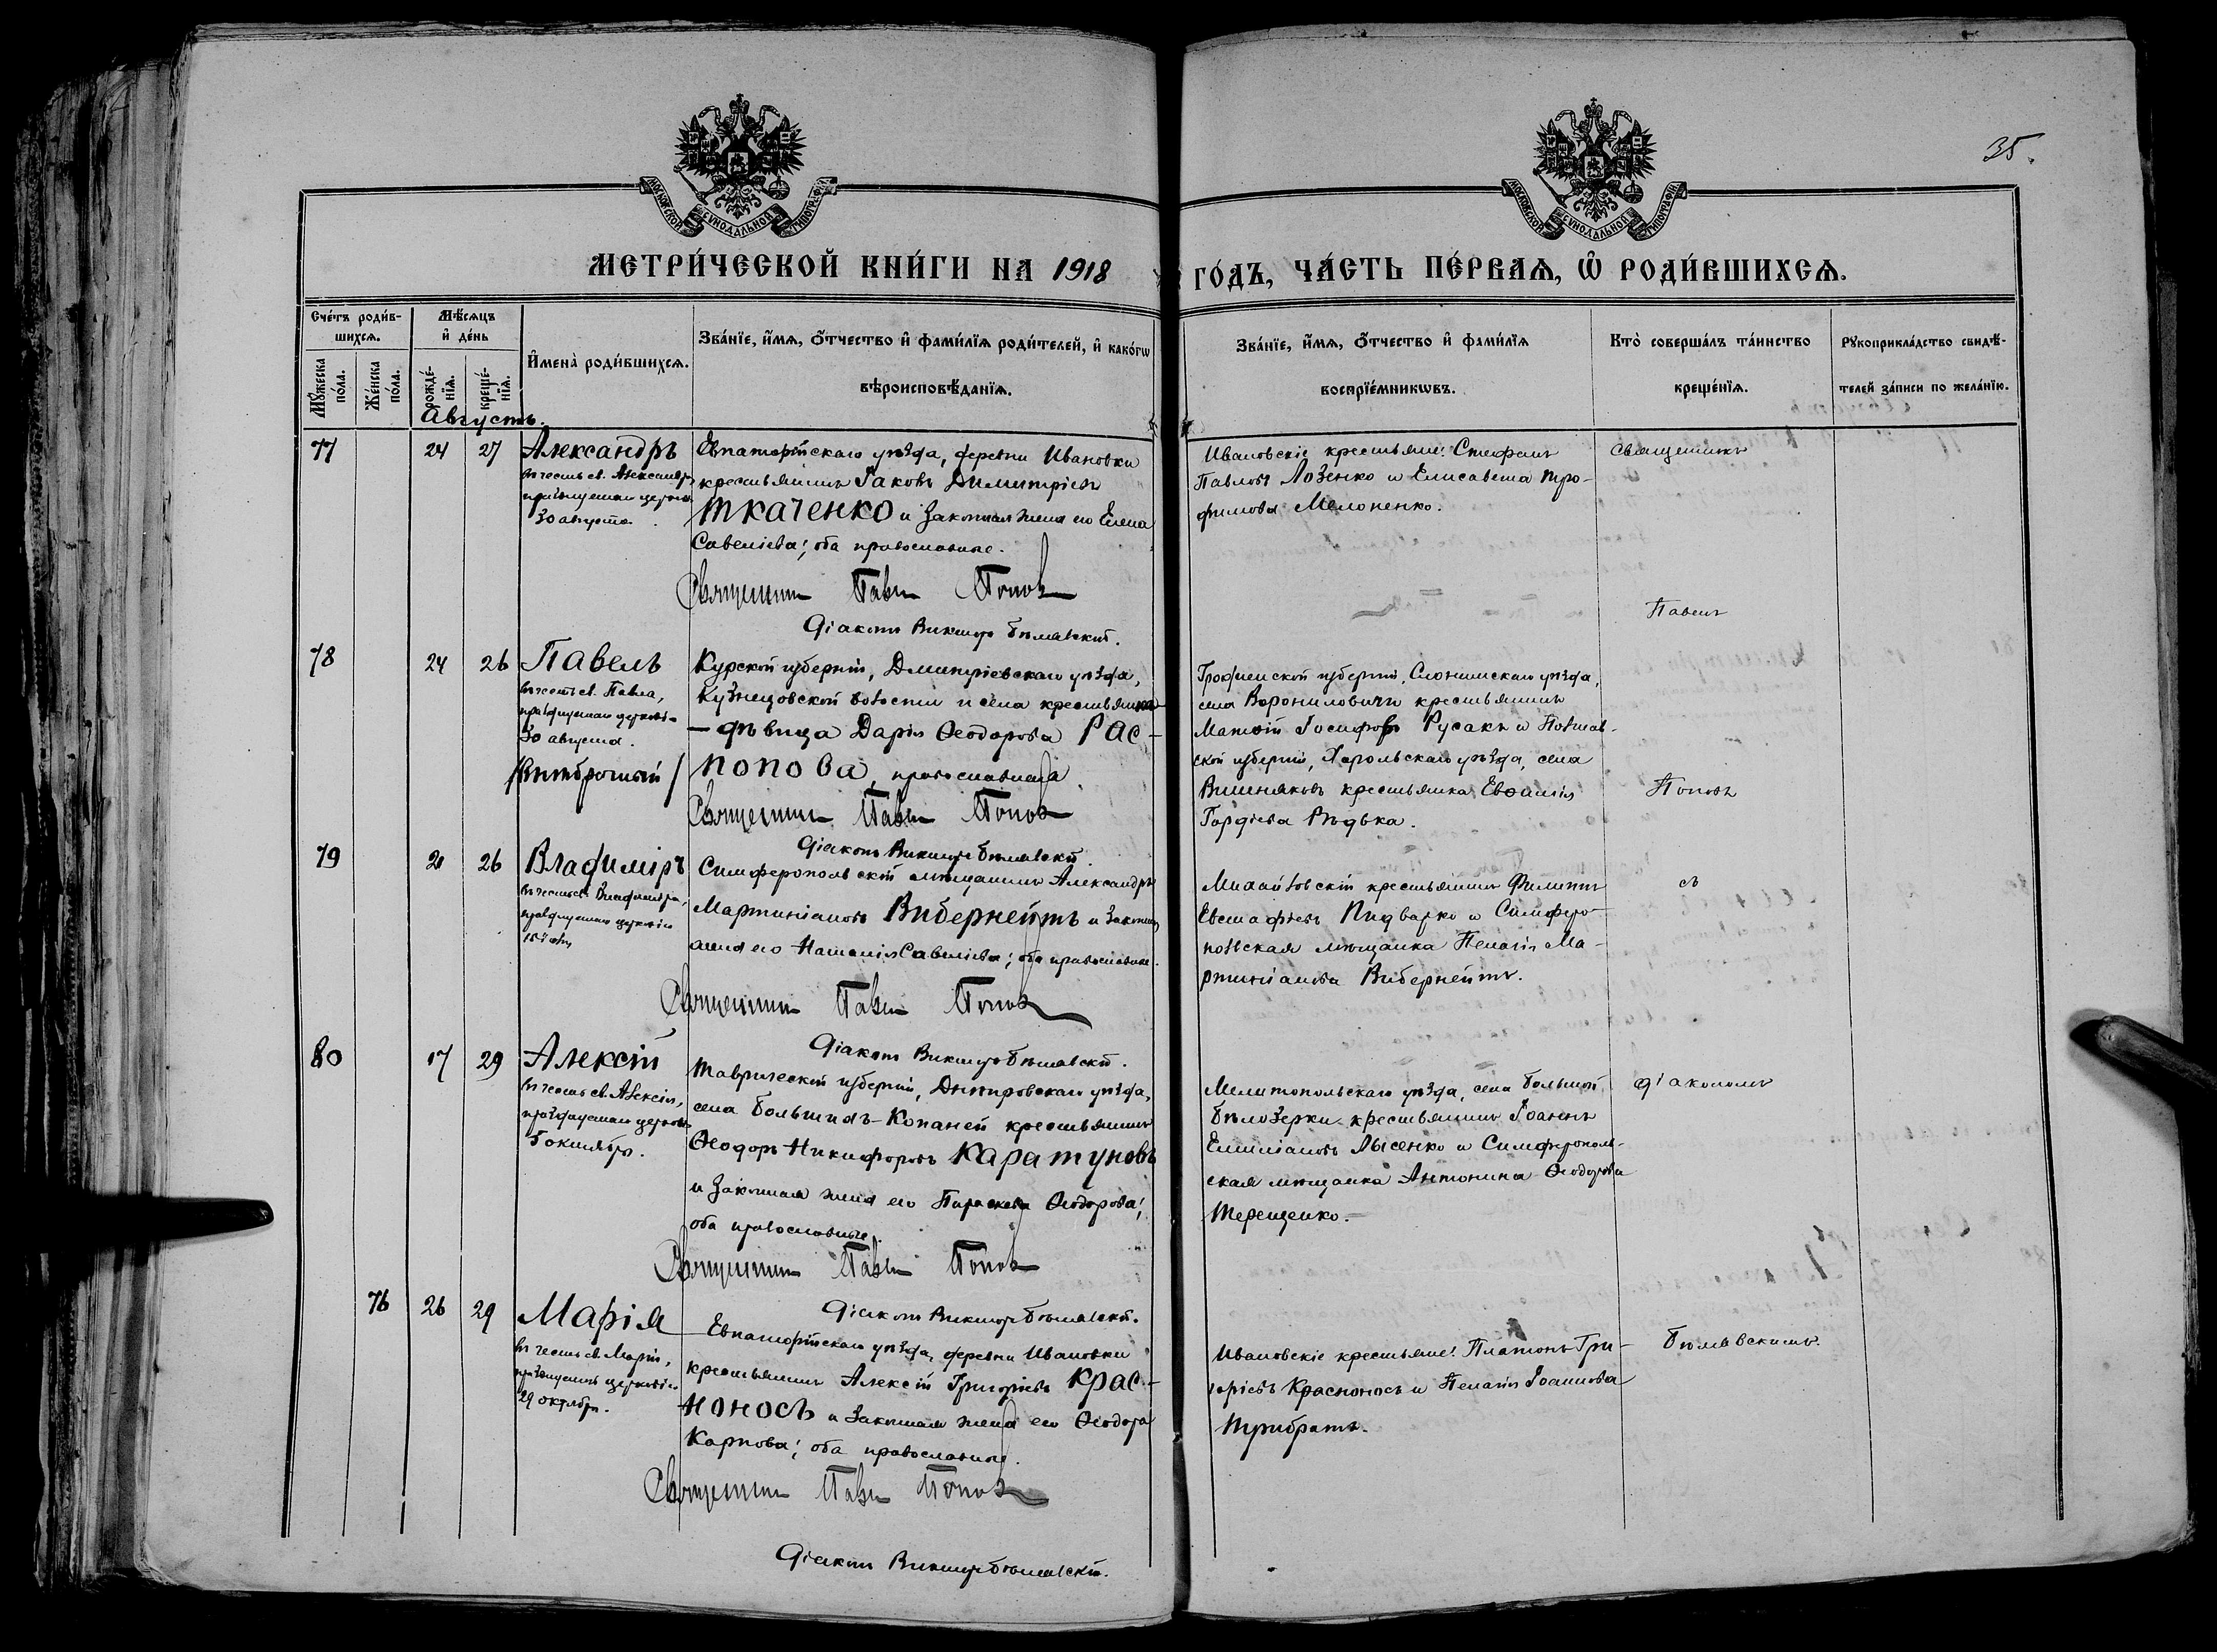 35.
МОСКОВСКОЙ СѴНОДАЛЬНОЙ ТИПОГРАФІИ
МОСКОВСКОЙ СѴНОДАЛЬНОЙ ТИПОГРАФІИ
МЕТРИ́ЧЕСКОЙ КНИ́ГИ НА 1918 ГО́ДЪ, ЧА́СТЬ ПЕ́РВАѦ, Ѡ҆ РОДИ́ВШИХСѦ.
Сче́тъ роди́в-
шихсѧ.
Мꙋ́жеска по́ла.
Же́нска по́ла.
Мѣ́сѧцъ
и҆ де́нь
рожде́-
нїѧ.
креще́-
нїѧ.
И҆мена̀ роди́вшихсѧ.
Зва́нїе, и҆́мѧ, ѻ҆́тчество и҆ фами́лїѧ роди́телей, и҆ како́гѡ
вѣроисповѣ́данїѧ.
Зва́нїе, и҆́мѧ, ѻ҆́тчество и҆ фами́лїѧ
воспрїе́мникѡвъ.
Кто̀ соверша́лъ та́инство
креще́нїѧ.
Рꙋкоприкла́дство свидѣ́-
телей за́писи по жела́нїю.
Августъ.
77 24 27 Александръ
въ честь св. Александра,
празднуемаго церковію
30 августа.
Евпаторійскаго уѣзда, деревни Ивановки
крестьянинъ Іаковъ Димитріевъ
Ткаченко и законная жена его Елена
Савеліева; оба православные.
Священникъ Павелъ Поповъ
Діаконъ Викторъ Бѣлявскій.
Ивановскіе крестьяне: Стефанъ
Павловъ Лозенко и Елисавета Тро-
фимова Мелоненко.
Священникъ
Павелъ
78 24 26 Павелъ
въ честь св. Павла,
празднуемаго церковію
30 августа.
/Внѣбрачный/
Курской губерніи, Дмитріевскаго уѣзда,
Кузнецовской волости и села крестьянка
– дѣвица Дарія Ѳеодорова Рас-
попова, православная.
Священникъ Павелъ Поповъ
Діаконъ Викторъ Бѣлявскій.
Гродненской губерніи, Слонимскаго уѣзда,
села Ворониловичи крестьянинъ
Матвѣй Іосифовъ Русакъ и Полтав-
ской губерніи, Харольскаго уѣзда, села
Вишняковъ крестьянка Евѳимія
Гордіева Рѣдька.
Поповъ
79 21 26 Владиміръ
въ честь св. Владиміра,
празднуемаго церковію
15 іюля
Симферопольскій мѣщанинъ Александръ
Мартиніановъ Вибернейтъ и законная
жена его Наталія Савеліева; оба православные.
Священникъ Павелъ Поповъ
Діаконъ Викторъ Бѣлявскій.
Михайловскій крестьянинъ Филиппъ
Евстафіевъ Пидварко и Симферо-
польская мѣщанка Пелагія Ма-
ртиніанова Вибернейтъ.
съ
80 17 29 Алексій
въ честь св. Алексія,
празднуемаго церковію
5 октября.
Таврической губерніи, Днѣпровскаго уѣзда,
села Большихъ-Копаней крестьянинъ
Ѳеодоръ Никифоровъ Каратуновъ
и законная жена его Параскева Ѳеодорова;
оба православные.
Священникъ Павелъ Поповъ
Діаконъ Викторъ Бѣлявскій.
Мелитопольскаго уѣзда, села Большой
Бѣлозерки крестьянинъ Іоаннъ
Емиліановъ Лысенко и Симферополь-
ская мѣщанка Антонина Ѳеодорова
Терещенко.
діакономъ
76 26 29 Марія
въ честь св. Маріи,
празднуемой церковію
29 октября.
Евпаторійскаго уѣзда, деревни Ивановки
крестьянинъ Алексій Григоріевъ Крас-
ноносъ и законная жена его Ѳеодора
Карпова; оба православные.
Священникъ Павелъ Поповъ
Діаконъ Викторъ Бѣлявскій.
Ивановскіе крестьяне: Платонъ Гри-
горіевъ Красноносъ и Пелагія Іоаннова
Трибратъ.
Бѣлявскимъ.